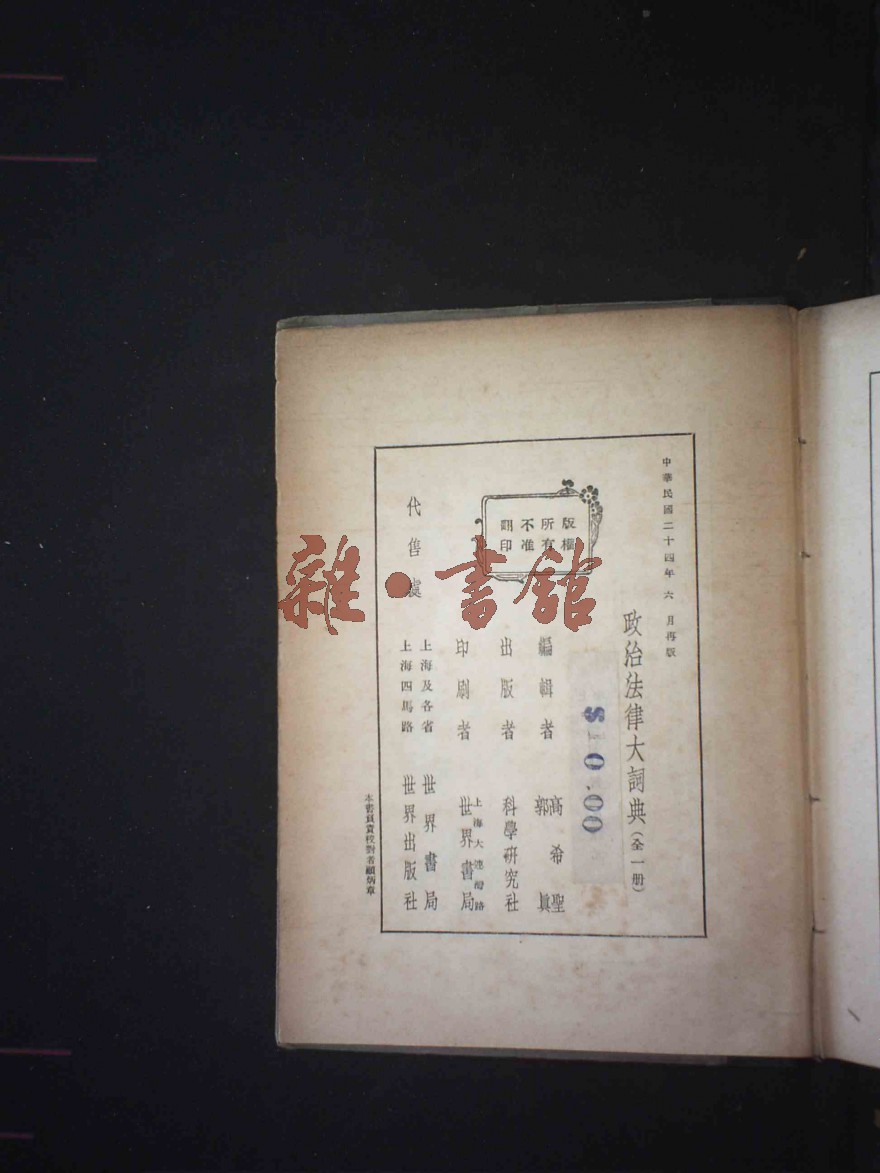 中華民國二十四年六月再版
政治法律大詞典(全一册)
版權
所有
不准
翻印
編輯者
高希聖
郭真
出版者
科學研究社
印刷者
上海大連灣路
世界書局
代售處
上海及各省
世界書局
上海四馬路
世界出版社
本書負責校對者顧炳章
雜·書館